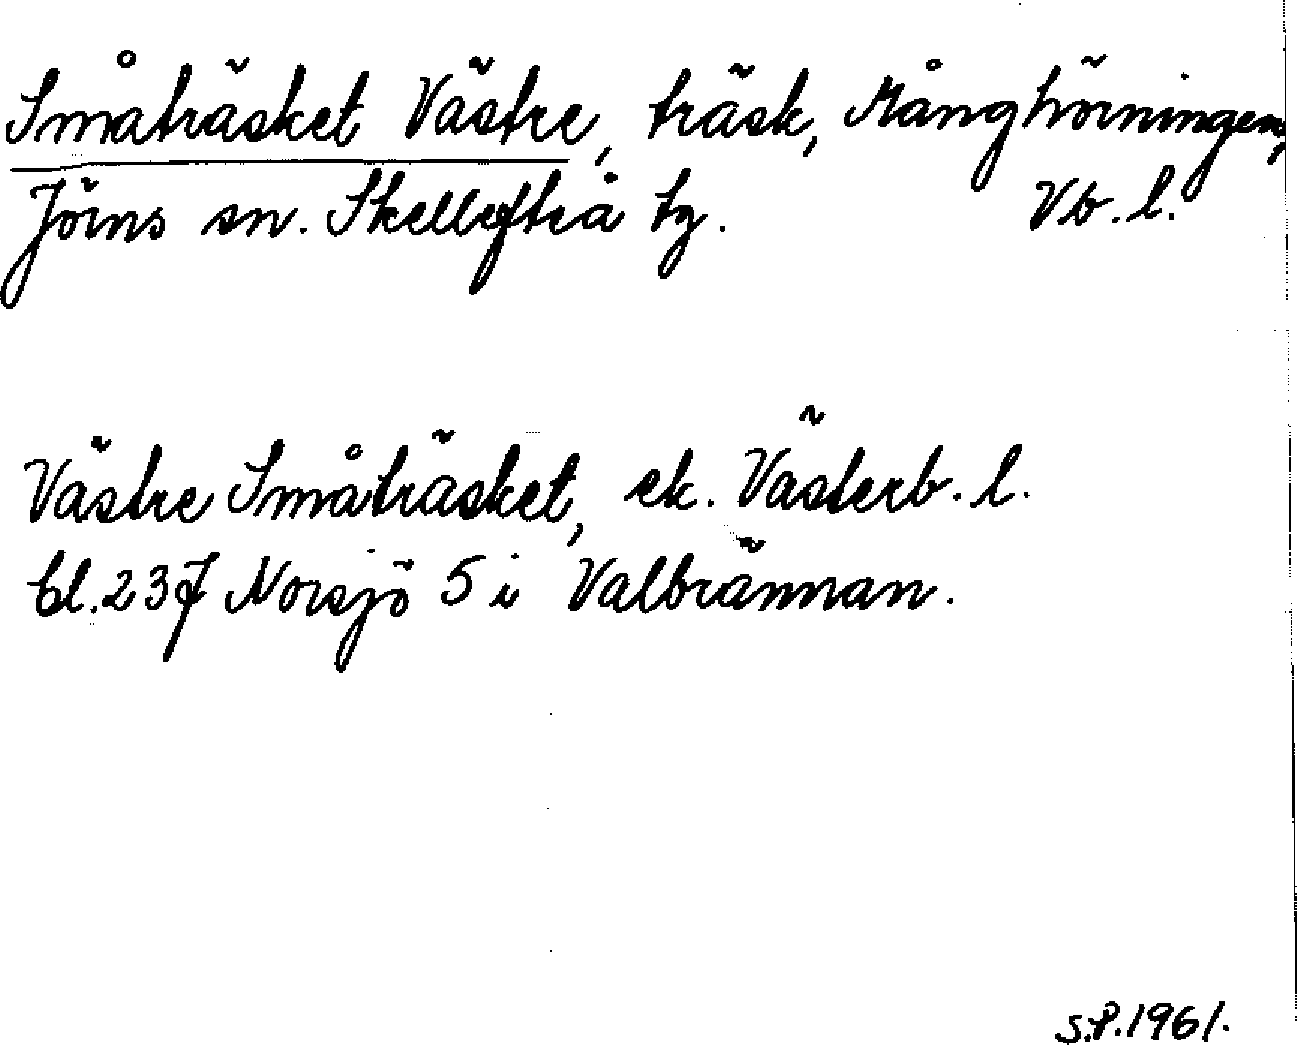 Småträsket Västre, träsk, Månghörningen,
Jörns sn. Skellefteå tg. Vb. l.
Västre Småträsket, ek. Västerb. l.
bl. 23J Norsjö 5 i Valbrännan.
S.P. 1961.